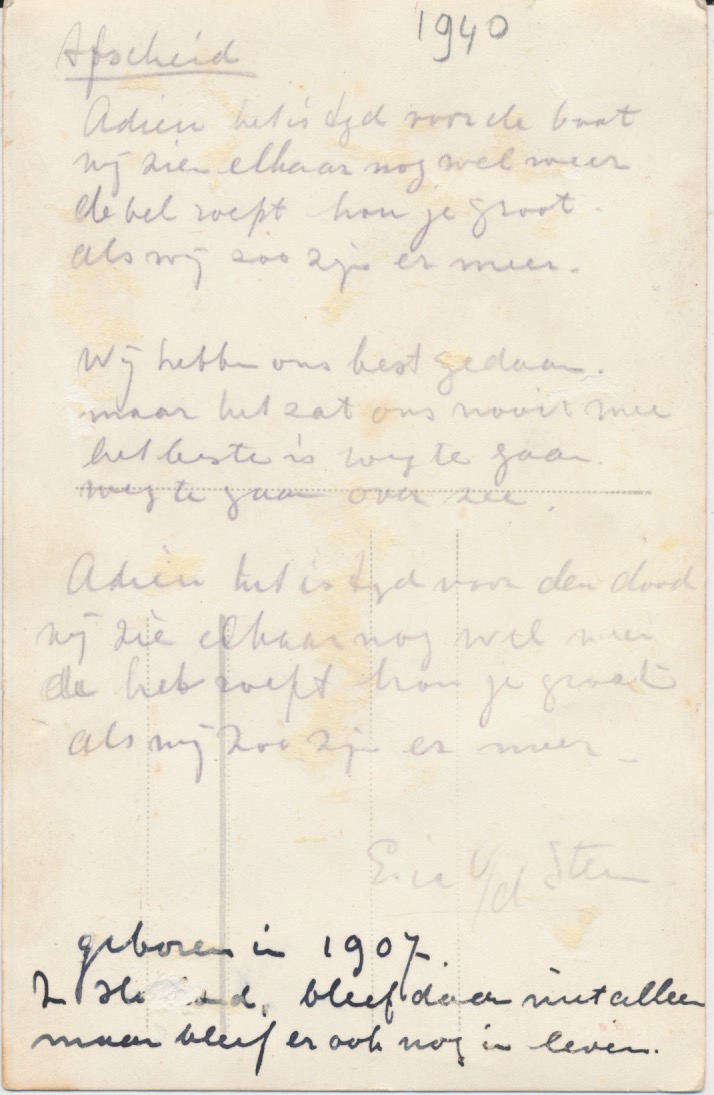 1940
Afscheid
Adieu het is tyd voor de boot
wij zien elkaar nog wel weer
de bel roept hou je groot.
als wij zoo zijn er meer.
Wij hebben ons best gedaan.
maar het zat ons nooit mee
het beste is weg te gaan.
weg te gaan over zee.
Adieu het is tyd voor den dood
wij zie elkaar nog wel weer
de heb roept hou je groot
als wij zoo zijn er meer
Eric v/d Steen
geboren in 1907
bleef daar niet alleen
maar bleef er ook nog in leven.